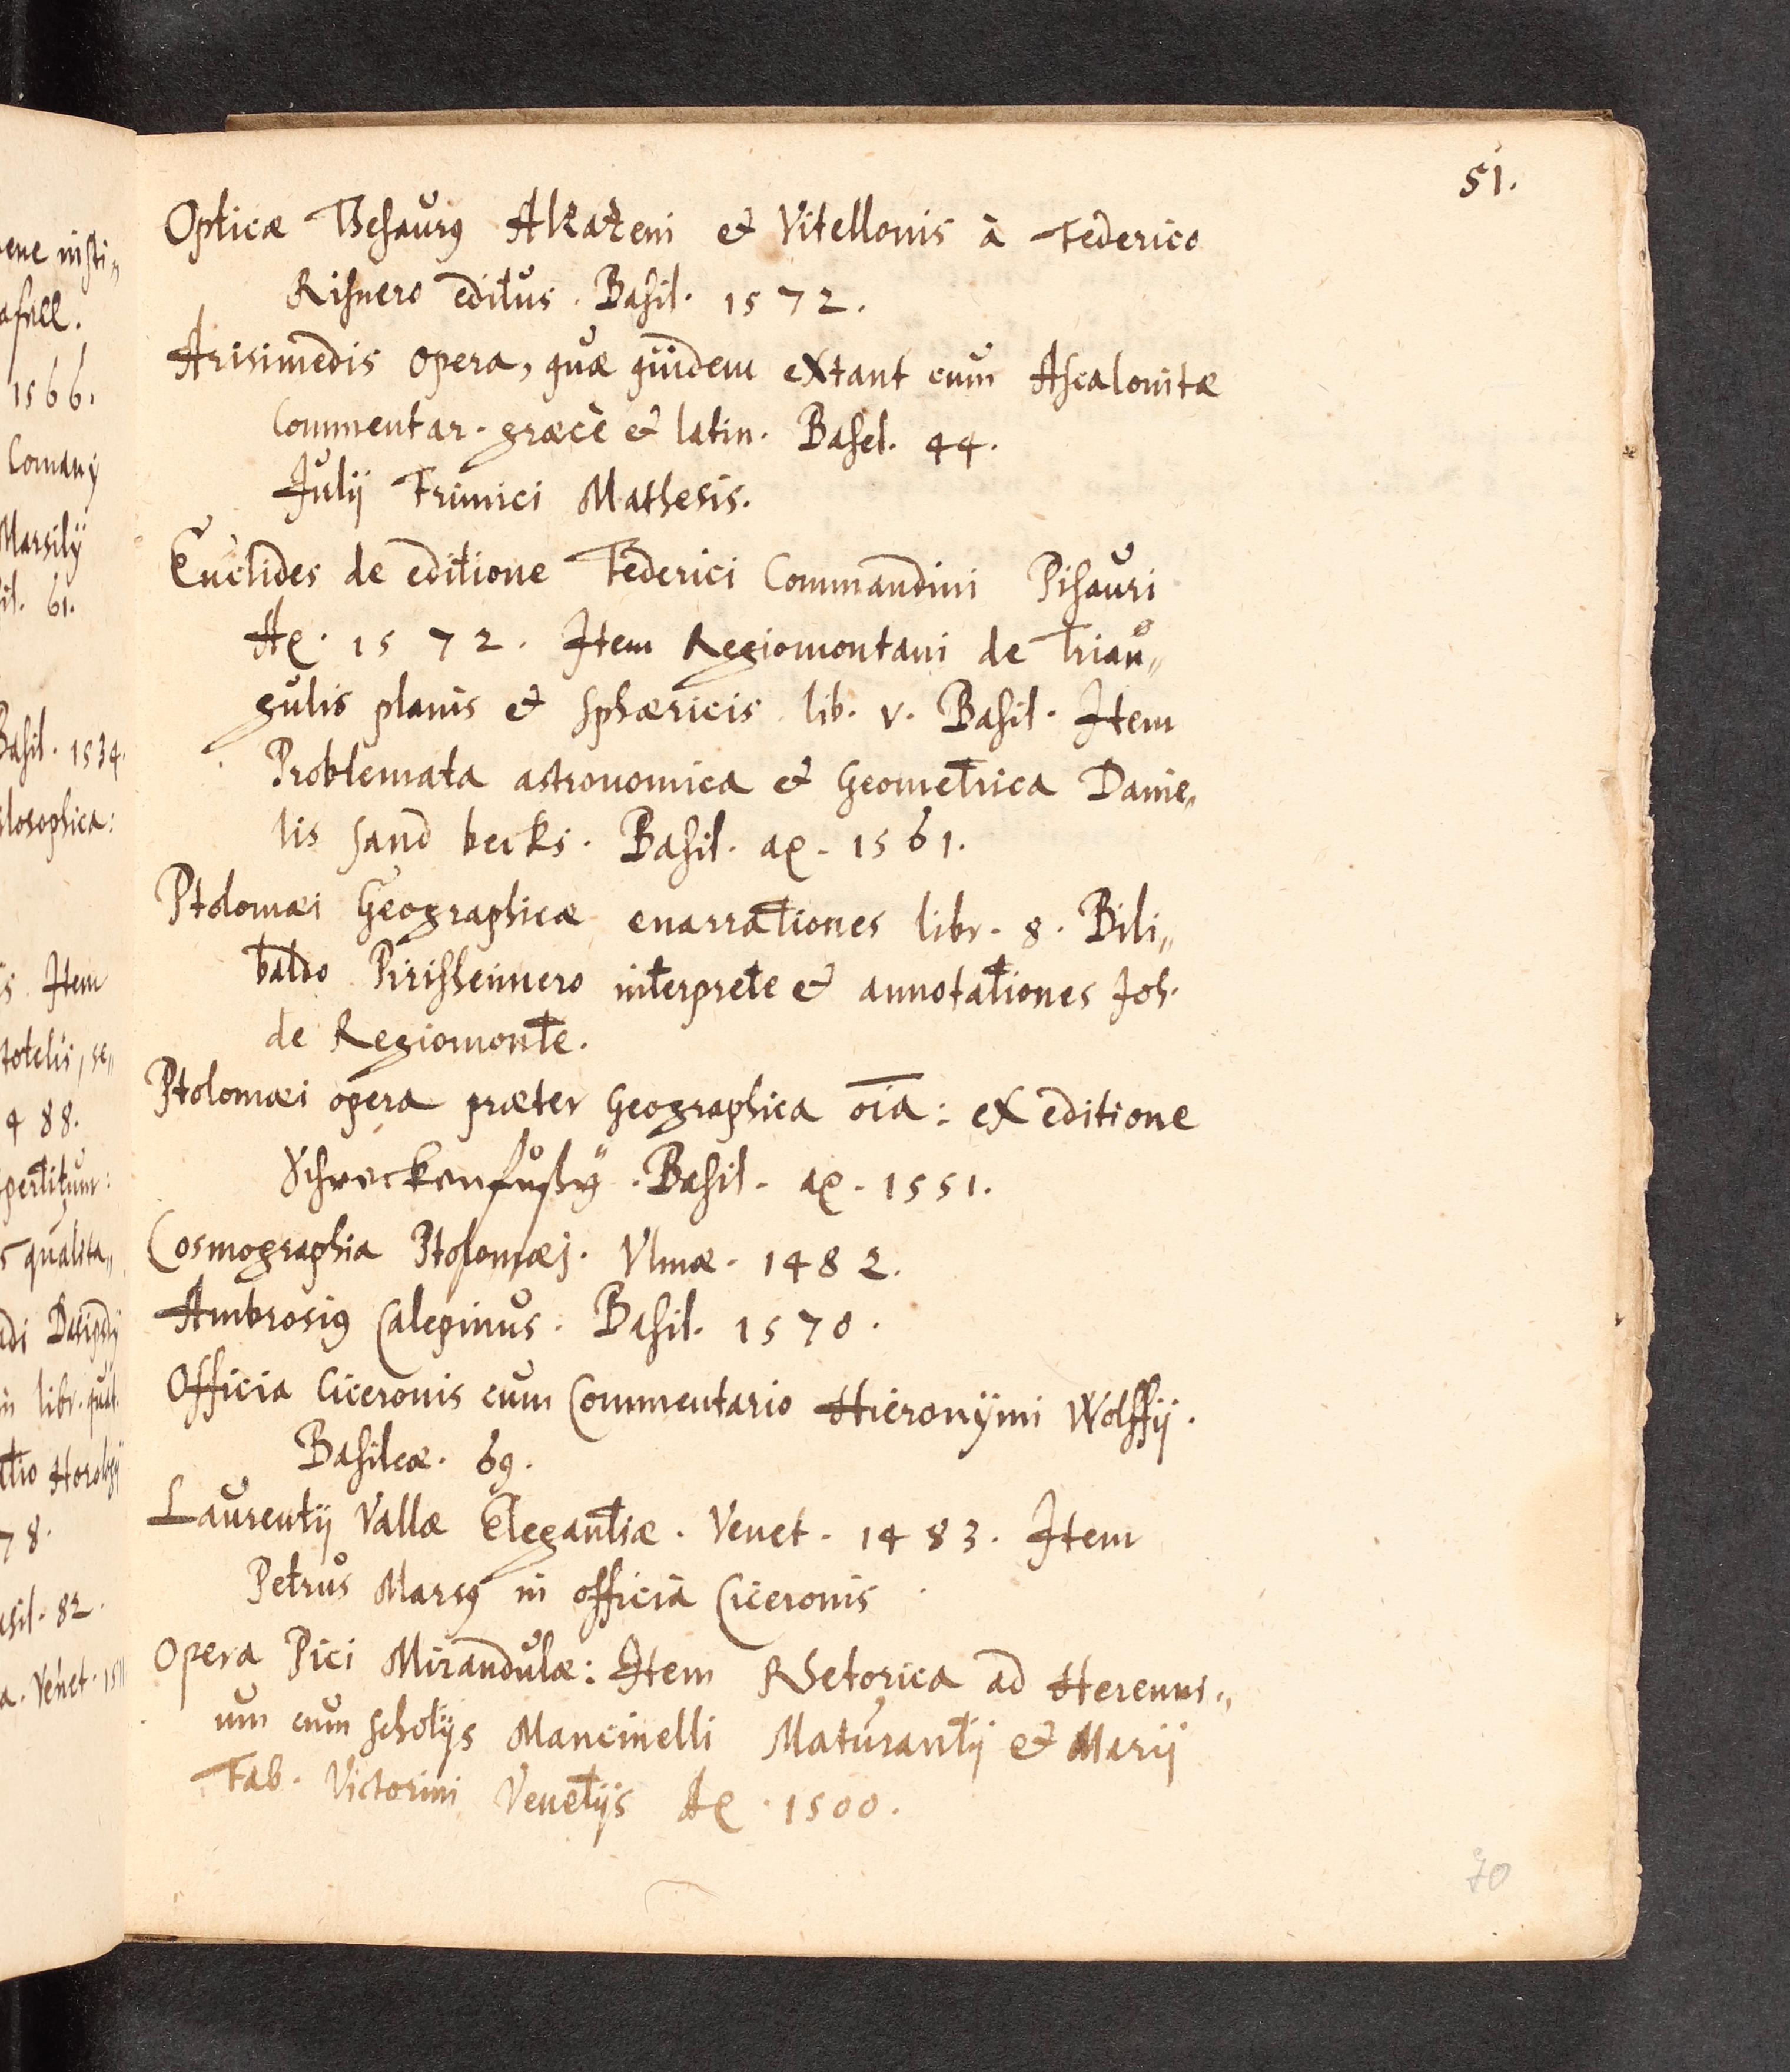 51.
Opticæ Thesaurus Alkazeni et Vitellonis à Federico
Risnero editus. Basil. 1572.
Arisimedis opera, quæ quidem extant cum Ascalonitæ
Commentar. græcè et latin. Basel. 44.
Julij Frimici Mathesis.
Euclides de editione Federici Commandini Pisauri
Aō. 1572. Item Regiomontani de Trian„
gulis planis et sphæricis lib. v. Basil. Item
Problemata astronomica et Geometrica Danie„
lis sand becks. Basil. aō. 1561.
Ptolomæi Geographicæ enarrationes libr. 8. Bili„
baldo Pirisheimero interprete et annotationes Joh.
de Regiomonte.
Ptolomæi opera præter Geographica oīa: ex editione
Schreckenfußij. Basil. aō. 1551.
Cosmographia Ptolomæj. Vlmæ. 1482.
Ambrosius Calepinus. Basil. 1570.
Officia Ciceronis cum Commentario Hieronÿmi Wolffij.
Basileæ. 69.
Laurentij Vallæ Elegantiæ. Venet. 1483. Item
Petrus Marsus in officia Ciceronis
Opera Pici Mirandulæ: Item Rhetorica ad Herenni„
um cum scholijs Mancinelli Maturantij et Marij
Fab. Victorini Venetijs Aō. 1500.
70
ene insti„
1566.
Comanj
Marsilij
il. 61.
Basil. 1534.
losophica:
s Item
totelis, se„
488.
pertitum:
s qualita„
adi Dasipodij
in libr. quat.
78.
asil. 82.
a. Venet. 151